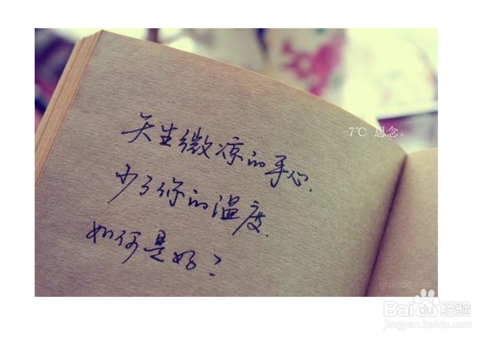 -7℃ 思念。
天生微凉的手心.
少了你的温度.
如何是好?
Baidu 经验
jingyan.baidu.com